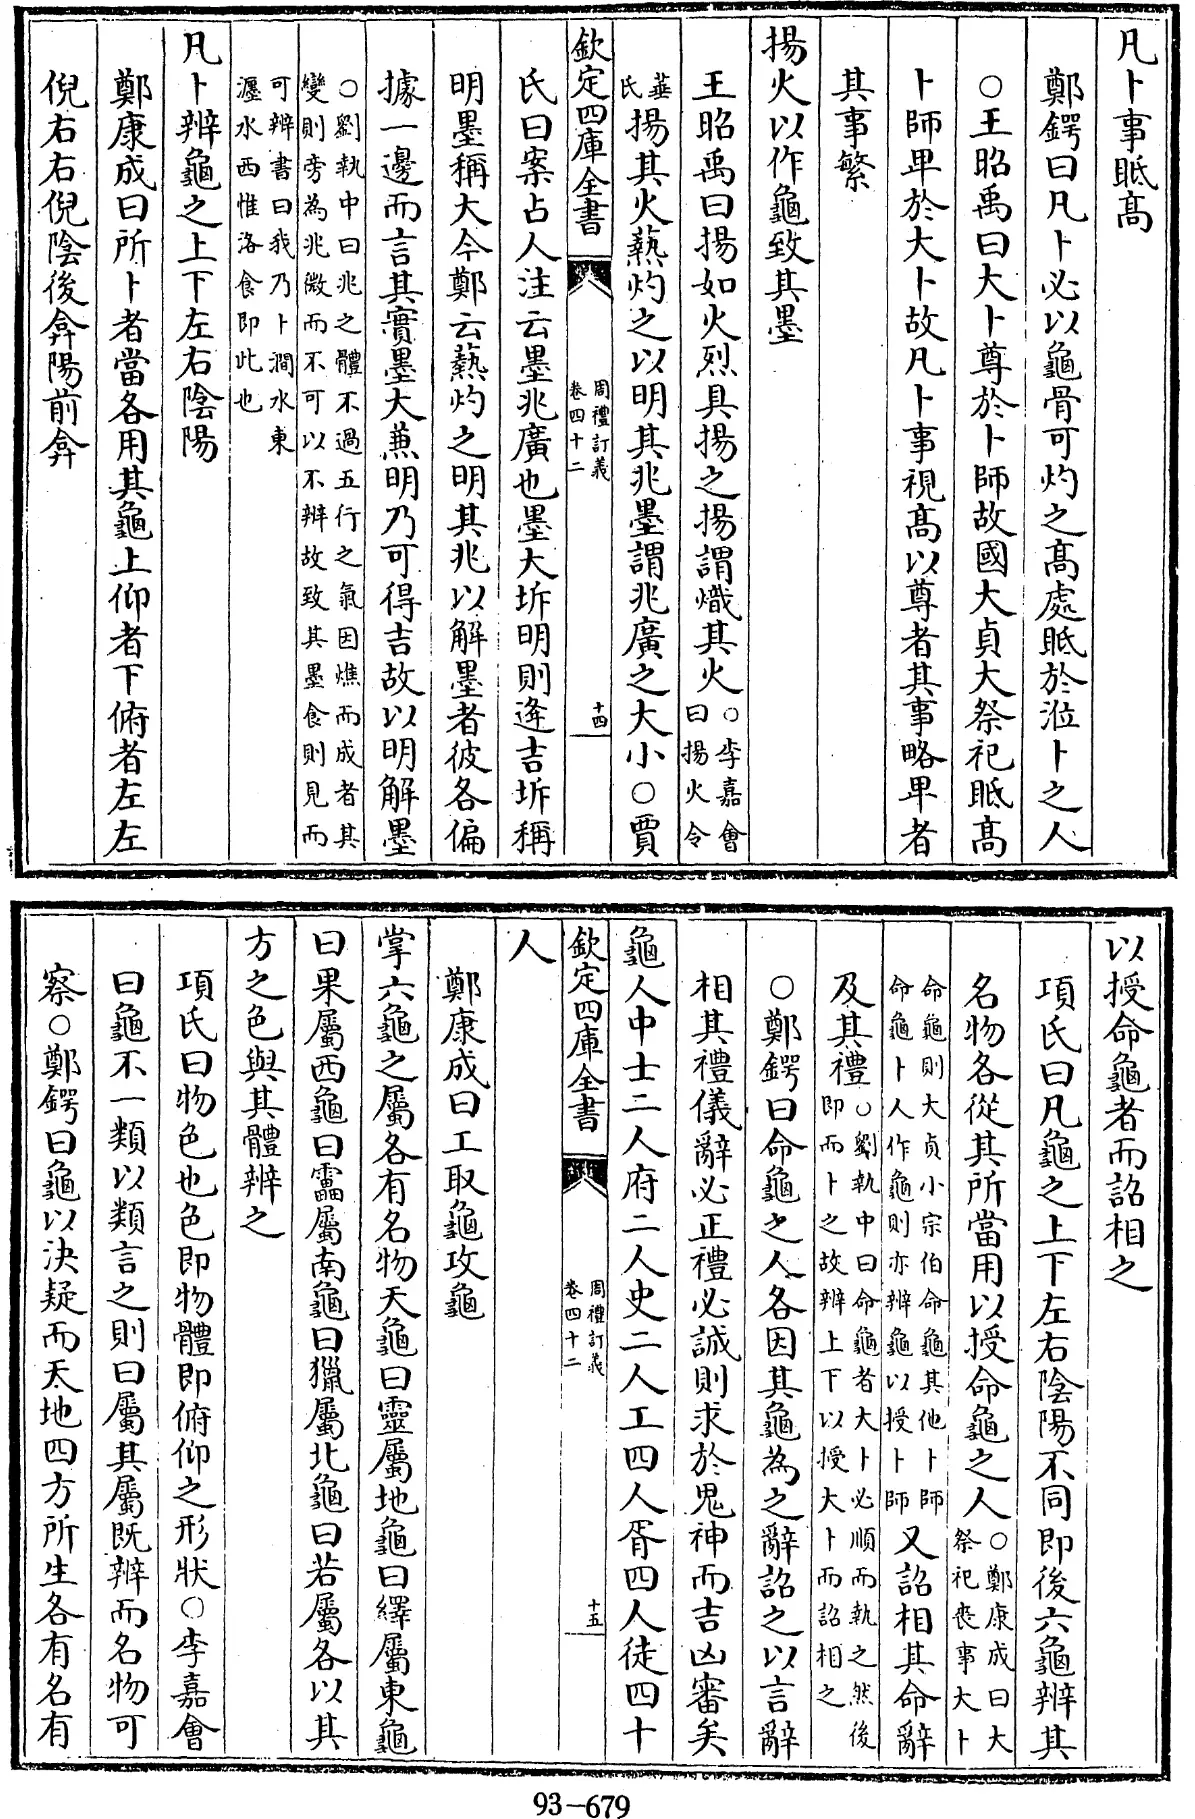 凡卜事眡髙
鄭鍔曰凡卜必以龜骨可灼之髙處眡於涖卜之人
○王昭禹曰大卜尊於卜師故國大貞大祭祀眡髙
卜師卑於大卜故凡卜事視髙以尊者其事略卑者
其事繁
揚火以作龜致其墨
王昭禹曰揚如火烈具揚之揚謂熾其火○李嘉會曰揚火令
菙氏揚其火爇灼之以明其兆墨謂兆廣之大小○賈
欽定四庫全書 周禮訂義卷四十二 十四
氏曰案占人注云墨兆廣也墨大坼明則逢吉坼稱
明墨稱大今鄭云爇灼之明其兆以解墨者彼各偏
據一邊而言其實墨大兼明乃可得吉故以明解墨
○劉執中曰兆之體不過五行之氣因燋而成者其
變則旁為兆㣲而不可以不辨故致其墨食則見而
可辨書曰我乃卜澗水東
瀍水西惟洛食即此也
凡卜辨龜之上下左右陰陽
鄭康成曰所卜者當各用其龜上仰者下俯者左左
倪右右倪陰後弇陽前弇
以授命龜者而詔相之
項氏曰凡龜之上下左右陰陽不同即後六龜辨其
名物各從其所當用以授命龜之人○鄭康成曰大祭祀喪事大卜
命龜則大貞小宗伯命龜其他卜師命龜卜人作龜則亦辨龜以授卜師又詔相其命辭
及其禮○劉執中曰命龜者大卜必順而執之然後即而卜之故辨上下以授大卜而詔相之
○鄭鍔曰命龜之人各因其龜為之辭詔之以言辭
相其禮儀辭必正禮必誠則求於鬼神而吉凶審矣
龜人中士二人府二人史二人工四人胥四人徒四十
欽定四庫全書 周禮訂義卷四十二 十五
人
鄭康成曰工取龜攻龜
掌六龜之屬各有名物天龜曰靈屬地龜曰繹屬東龜
曰果屬西龜曰靁屬南龜曰獵屬北龜曰若屬各以其
方之色與其體辨之
項氏曰物色也色即物體即俯仰之形狀○李嘉會
曰龜不一類以類言之則曰屬其屬既辨而名物可
察○鄭鍔曰龜以决疑而天地四方所生各有名有
93-679